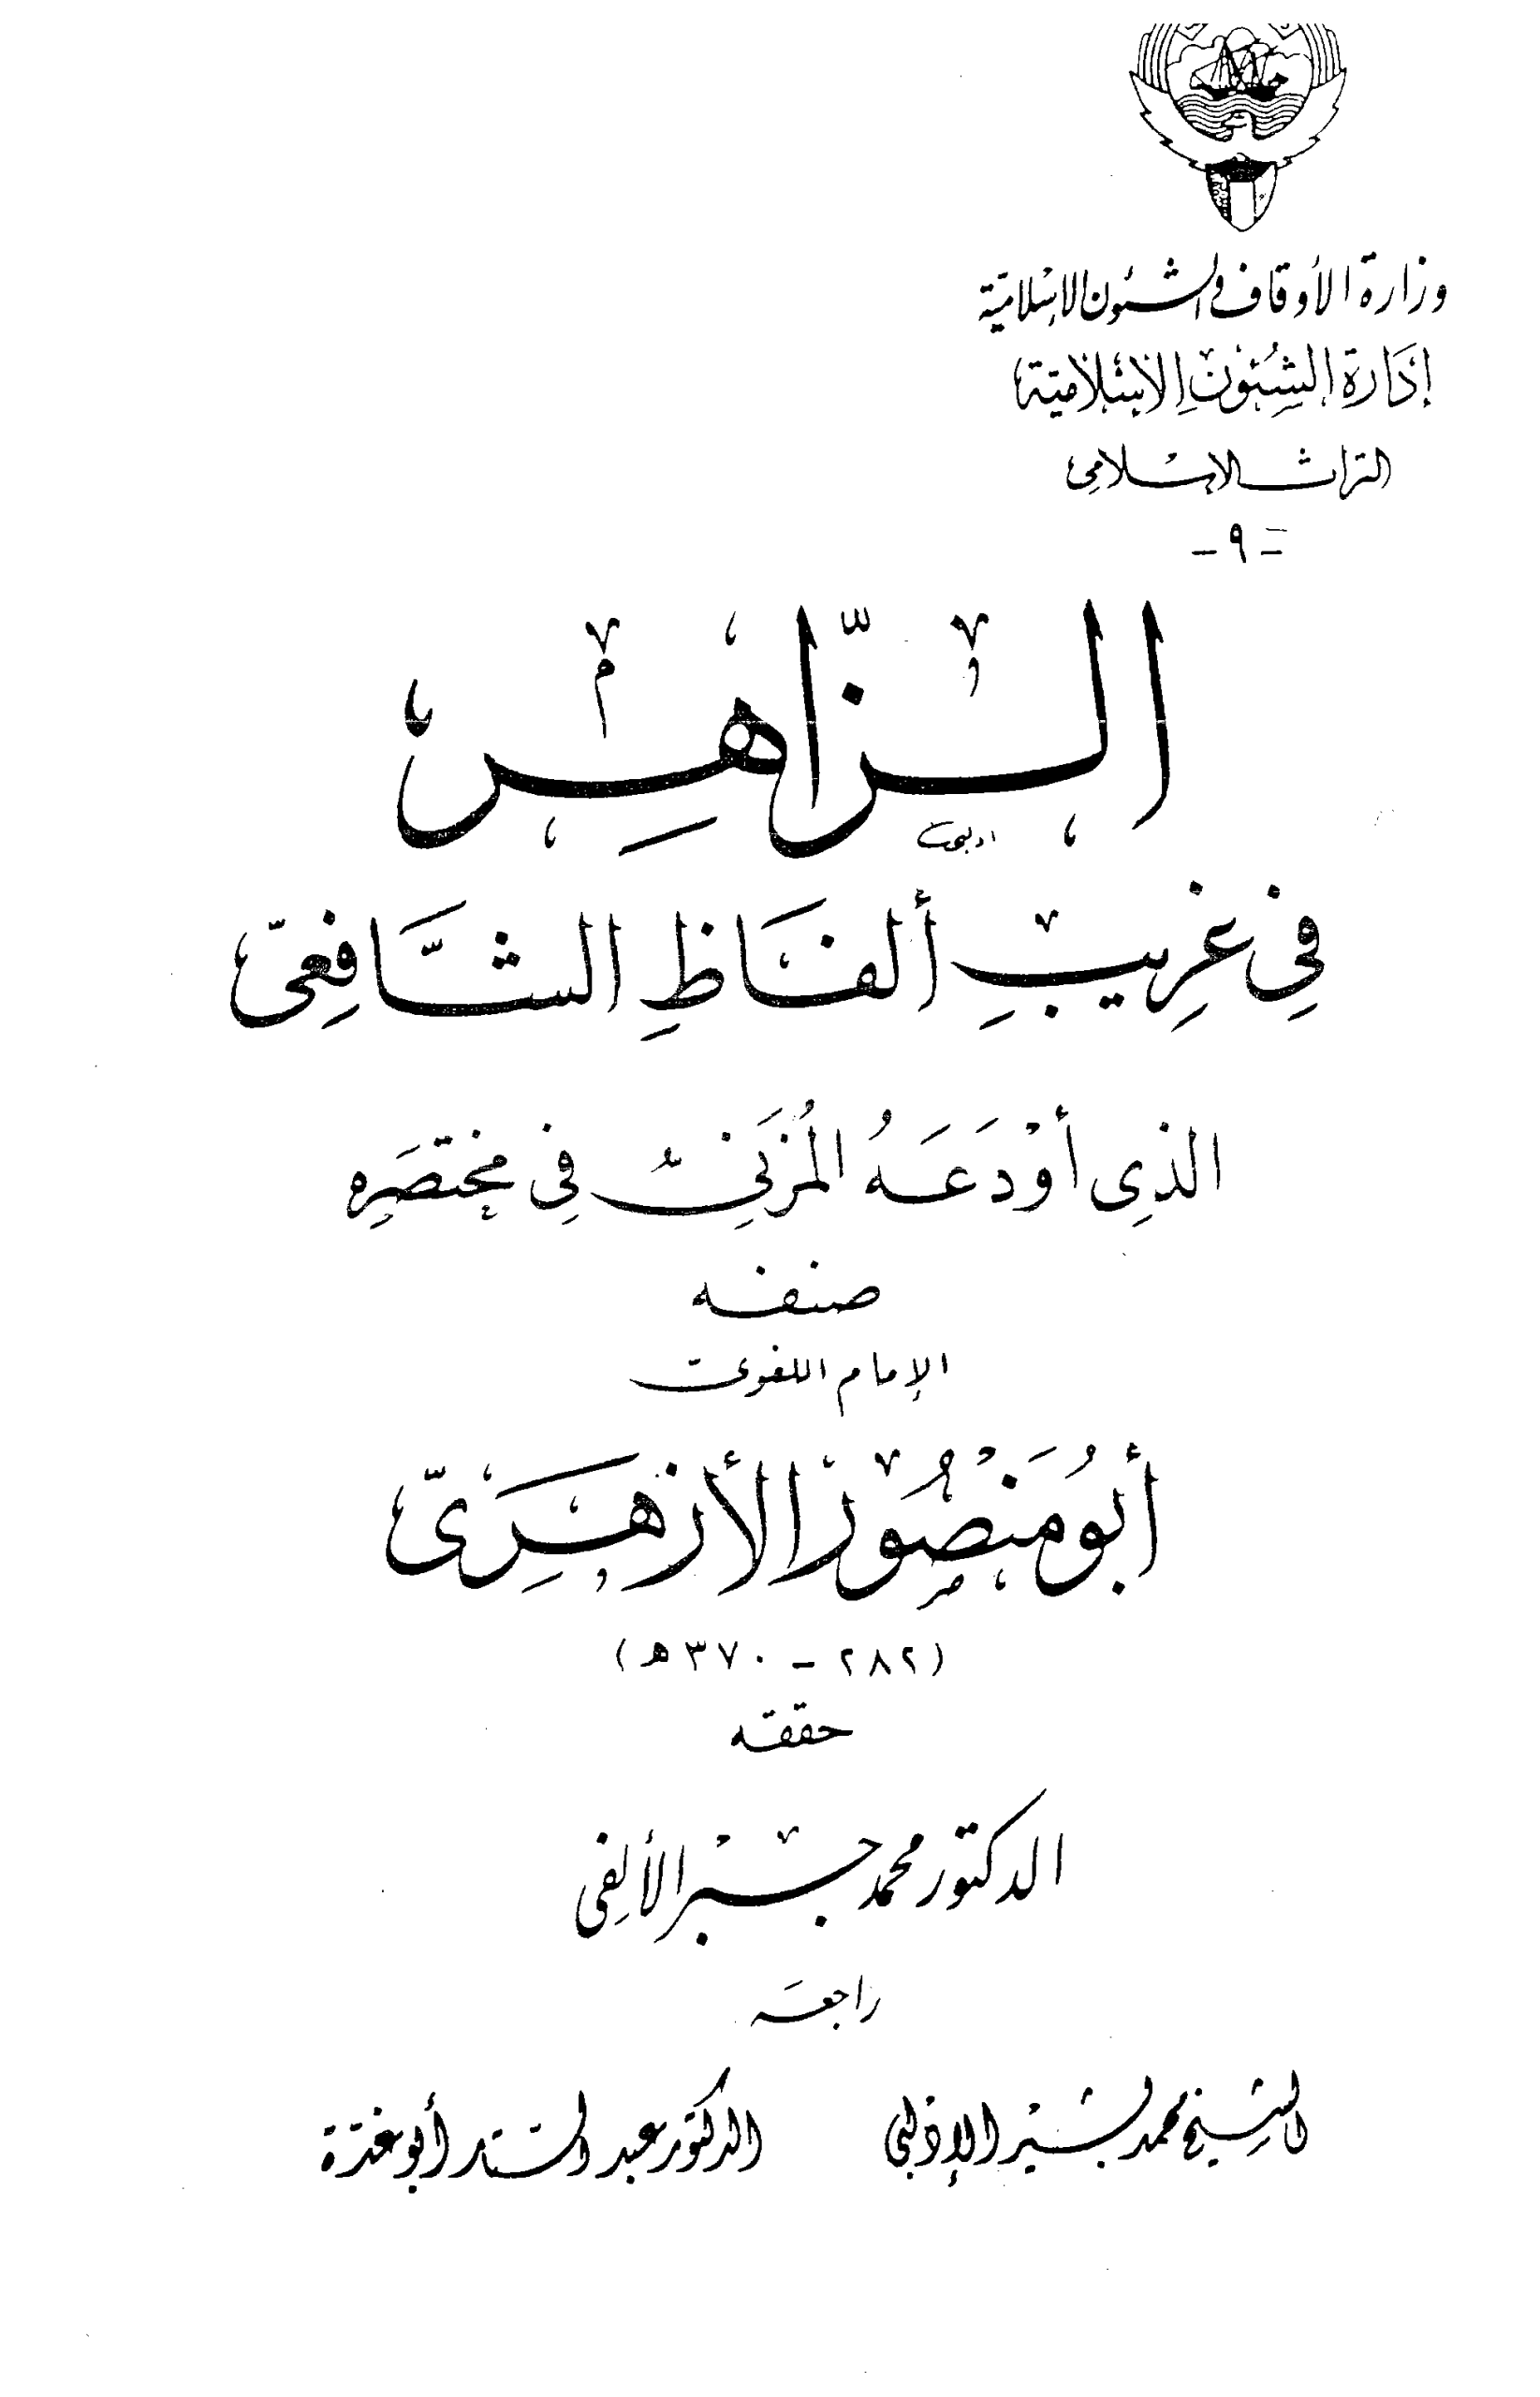 وزارة الأوقاف والشئون الإسلامية
إدَارة الشئُون الإسْلاميّة
التراث الإسلامى
- ٩ -
الزّاهِر
فِى غَرِيبِ ألفَاظِ الشَّافِعِىّ
الذِى أوْدَعَهُ المُزَنِىّ فِى مختصَرِه
صنفه
الإمام اللغوى
أبُو مَنْصُور الأزهَرِىّ
(٢٨٢ - ٣٧٠ هـ)
حققه
الدكتور محمد جبر الألفِى
راجعَه
الشيخ محمد بشير الإدلبى الدكتور عبد الستار أبو غدّة